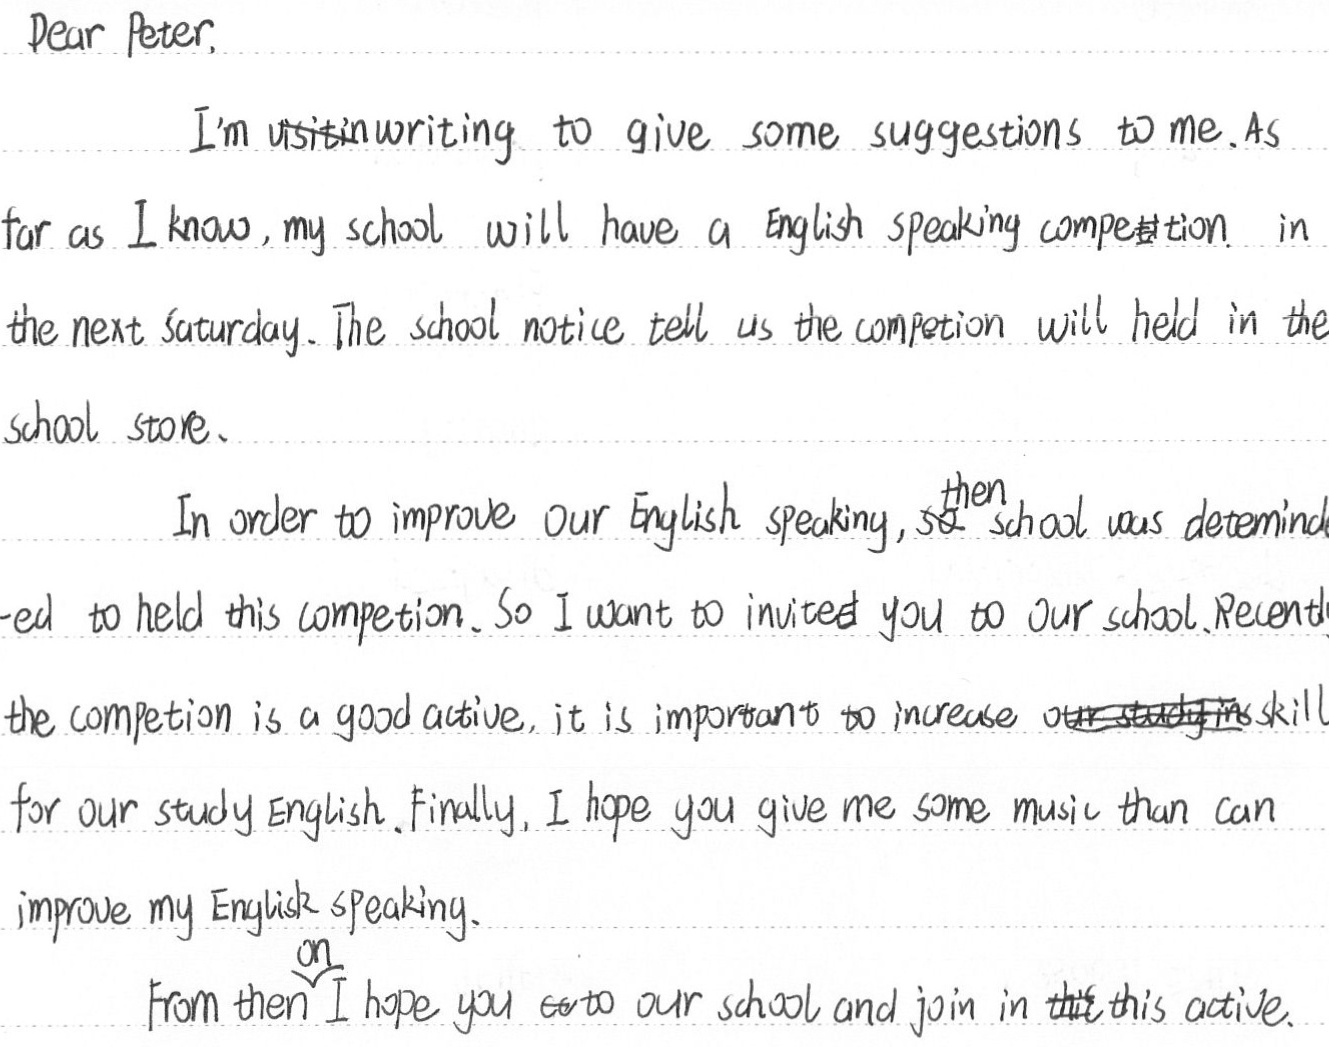 Dear Peter,
I'm writing to give some suggestions to me. As
far as I know, my school will have a English speaking competition in
the next Saturday. The school notice tell us the competion will held in the
school store.
In order to improve our English speaking, then school was detemind
-ed to held this competion. So I want to invited you to our school. Recently
the competion is a good active, it is important to increase skill
for our study English. Finally, I hope you give me some music than can
improve my English speaking.
From then on I hope you to our school and join in this active.